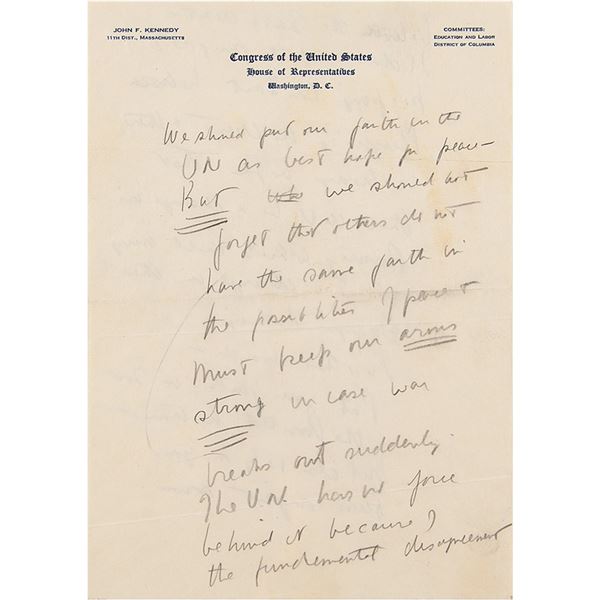 JOHN F. KENNEDY
11TH DIST., MASSACHUSETTS
COMMITTEES:
EDUCATION AND LABOR
DISTRICT OF COLUMBIA
Congress of the United States
House of Representatives
Washington, D. C.
We should put our faith in the
UN as best hope for peace–
But we should not
forget that others do not
have the same faith in
the possibilities of peace &
Must keep our arms
strong in case war
breaks out suddenly.
The UN has no force
behind it because of
the fundemental disagreement